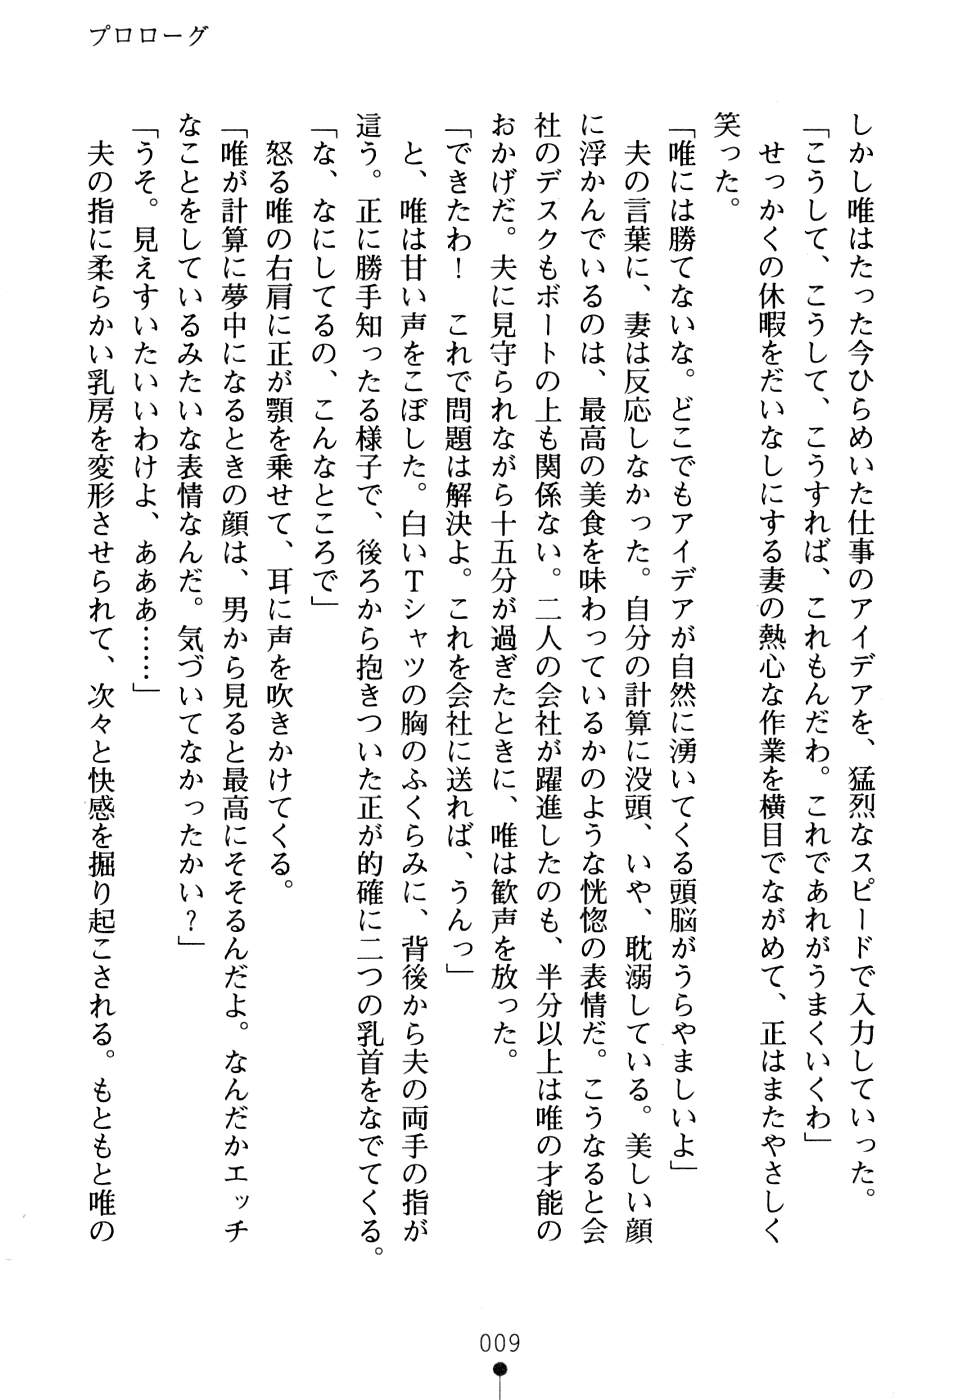 プロローグ
しかし唯はたった今ひらめいた仕事のアイデアを、猛烈なスピードで入力していった。
「こうして、こうして、こうすれば、これもんだわ。これであれがうまくいくわ」
せっかくの休暇をだいなしにする妻の熱心な作業を横目でながめて、正はまたやさしく
笑った。
「唯には勝てないな。どこでもアイデアが自然に湧いてくる頭脳がうらやましいよ」
夫の言葉に、妻は反応しなかった。自分の計算に没頭、いや、耽溺している。美しい顔
に浮かんでいるのは、最高の美食を味わっているかのような恍惚の表情だ。こうなると会
社のデスクもボートの上も関係ない。二人の会社が躍進したのも、半分以上は唯の才能の
おかげだ。夫に見守られながら十五分が過ぎたときに、唯は歓声を放った。
「できたわ！　これで問題は解決よ。これを会社に送れば、うんっ」
と、唯は甘い声をこぼした。白いＴシャツの胸のふくらみに、背後から夫の両手の指が
這う。正に勝手知ったる様子で、後ろから抱きついた正が的確に二つの乳首をなでてくる。
「な、なにしてるの、こんなところで」
怒る唯の右肩に正が顎を乗せて、耳に声を吹きかけてくる。
「唯が計算に夢中になるときの顔は、男から見ると最高にそそるんだよ。なんだかエッチ
なことをしているみたいな表情なんだ。気づいてなかったかい？」
「うそ。見えすいたいいわけよ、あああ……」
夫の指に柔らかい乳房を変形させられて、次々と快感を掘り起こされる。もともと唯の
009